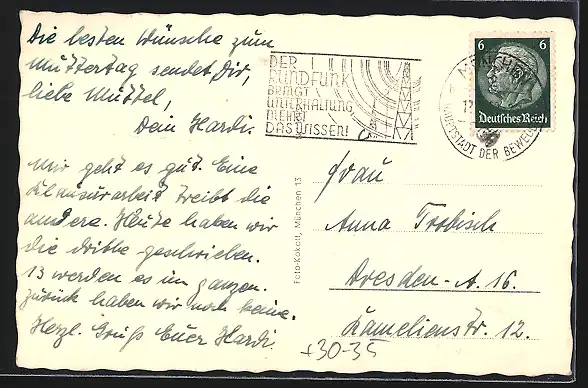 Die besten Wünsche zum
Muttertag sendet Dir,
liebe Muttel,
Dein Hardi.
Mir geht es gut. Eine
Klausurarbeit treibt die
andere. Heute haben wir
die dritte geschrieben.
13 werden es im ganzen.
Zurück haben wir noch keine.
Herzl. Gruß Euer Hardi.
DER
RUNDFUNK
BRINGT
UNTERHALTUNG
MEHRT
DAS WISSEN!
MÜNCHEN
HAUPTSTADT DER BEWEGUNG
6 6
Deutsches Reich
Foto-Kokott, München 13
Frau
Anna Trobisch
Dresden-A. 16.
Kamelienstr. 12.
+30-35